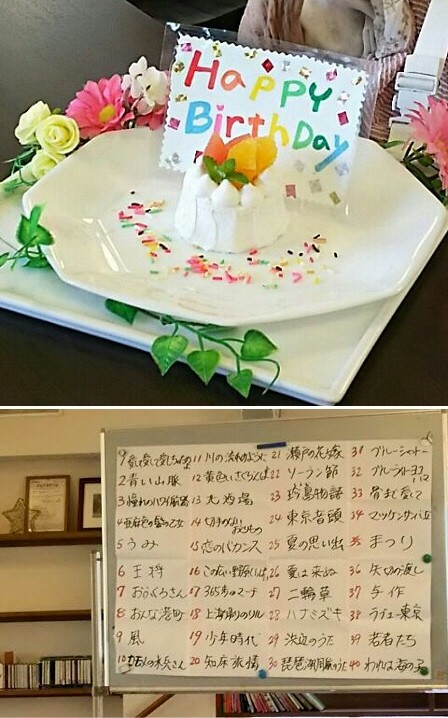 Happy
BirthDay
1 愛して愛して愛しちゃったのよ
2 青い山脈
3 憧れのハワイ航路
4 亜麻色の髪の乙女
5 うみ
6 王将
7 おふくろさん
8 おんな港町
9 風
11 川の流れのように
12 黄色いさくらんぼ
13 北酒場
15 恋のバカンス
16 この広い野原いっぱい
17 365歩のマーチ
18 上海帰りのリル
19 少年時代
20 知床旅情
21 瀬戸の花嫁
22 ソーラン節
24 東京音頭
25 夏の思い出
26 夏は来ぬ
27 二輪草
28 ハナミズキ
29 浜辺のうた
30 琵琶湖周航のうた
31 ブルーシャトー
33 骨まで愛して
34 マツケンサンバⅡ
35 まつり
36 矢切の渡し
37 与作
38 ラヂオ東京
39 若者たち
40 われは海の子